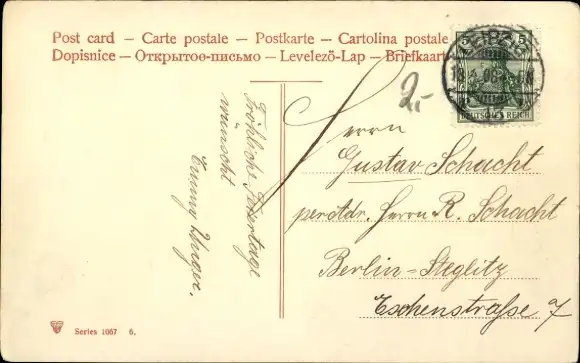 Post card – Carte postale – Postkarte – Cartolina postale
Dopisnice – Открытое-письмо – Levelező-Lap – Briefkaart
LEIPZIG
5
DEUTSCHES REICH
2,-
Fröhliche Feiertage
wünscht
Herrn
Gustav Schacht
per Adr. Herrn R. Schacht
Berlin-Steglitz
Eschenstraße 7
Series 1067 6.